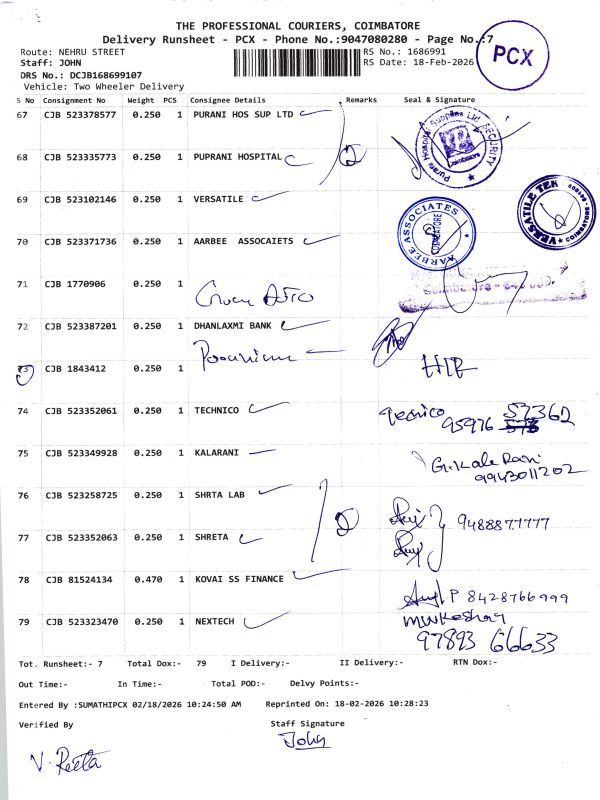 THE PROFESSIONAL COURIERS, COIMBATORE
Delivery Runsheet - PCX - Phone No.:9047080280 - Page No.:7
PCX
Route: NEHRU STREET
RS No.: 1686991
Staff: JOHN
RS Date: 18-Feb-2026
DRS No.: DCJB168699107
Vehicle: Two Wheeler Delivery
S No Consignment No Weight PCS Consignee Details Remarks Seal & Signature
67 CJB 523378577 0.250 1 PURANI HOS SUP LTD
Purani Hospital Supplies Ltd. SECURITY
68 CJB 523335773 0.250 1 PUPRANI HOSPITAL 2
69 CJB 523102146 0.250 1 VERSATILE
VERSATILE TEK COIMBATORE
70 CJB 523371736 0.250 1 AARBEE ASSOCAIETS
AARBEE ASSOCIATES COIMBATORE
71 CJB 1770906 0.250 1
Coimbatore - 641 009.
72 CJB 523387201 0.250 1 DHANLAXMI BANK
73 CJB 1843412 0.250 1
74 CJB 523352061 0.250 1 TECHNICO 95976 57362
75 CJB 523349928 0.250 1 KALARANI G.Kala Rani
9943011202
76 CJB 523258725 0.250 1 SHRTA LAB 2 9488877777
77 CJB 523352063 0.250 1 SHRETA
78 CJB 81524134 0.470 1 KOVAI SS FINANCE P 8428766999
79 CJB 523323470 0.250 1 NEXTECH
97893 66633
Tot. Runsheet:- 7 Total Dox:- 79 I Delivery:- II Delivery:- RTN Dox:-
Out Time:- In Time:- Total POD:- Delvy Points:-
Entered By :SUMATHIPCX 02/18/2026 10:24:50 AM Reprinted On: 18-02-2026 10:28:23
Verified By Staff Signature
John
V. Reeta